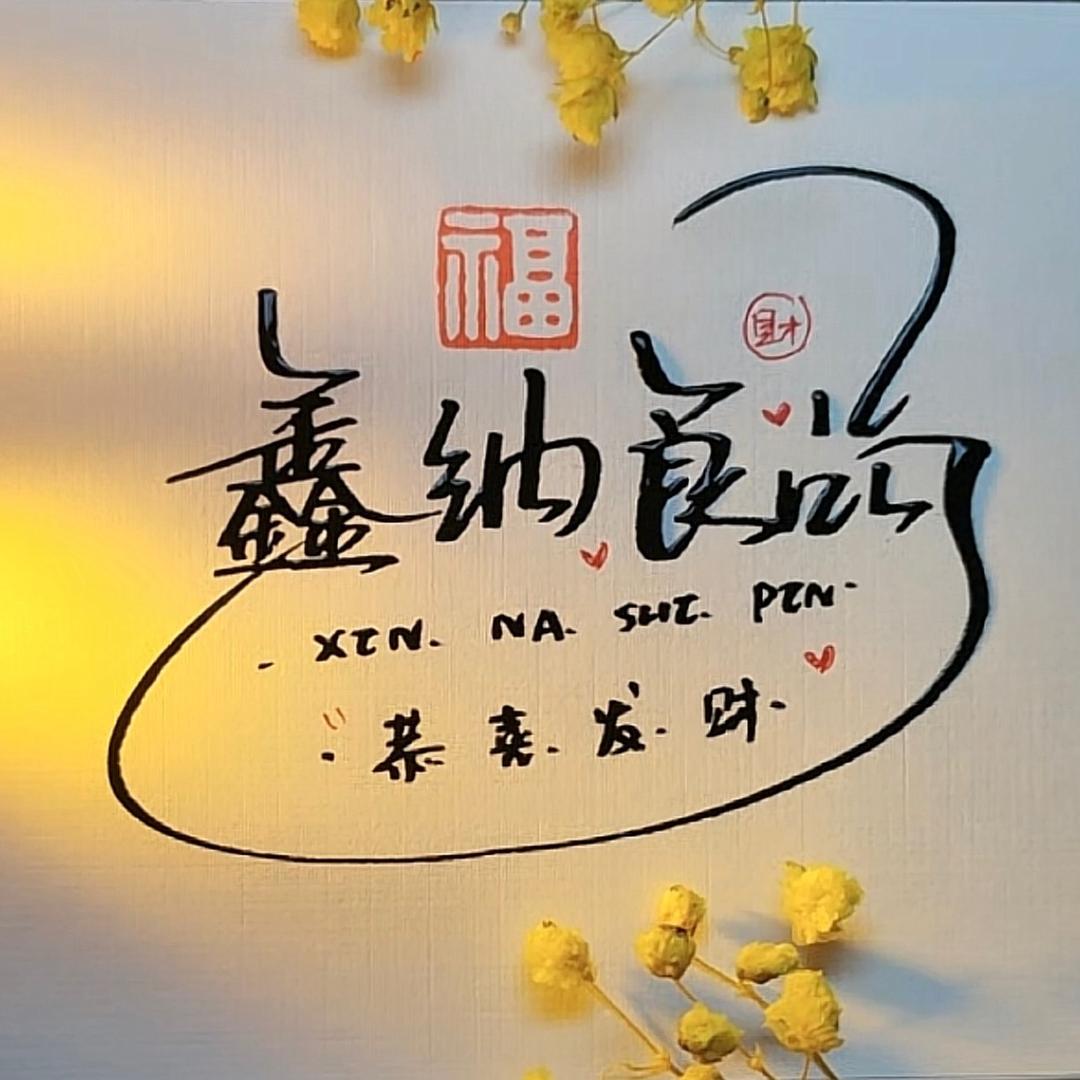 福
財
鑫纳食品
- XIN. NA. SHI. PIN-
恭喜.发.财.